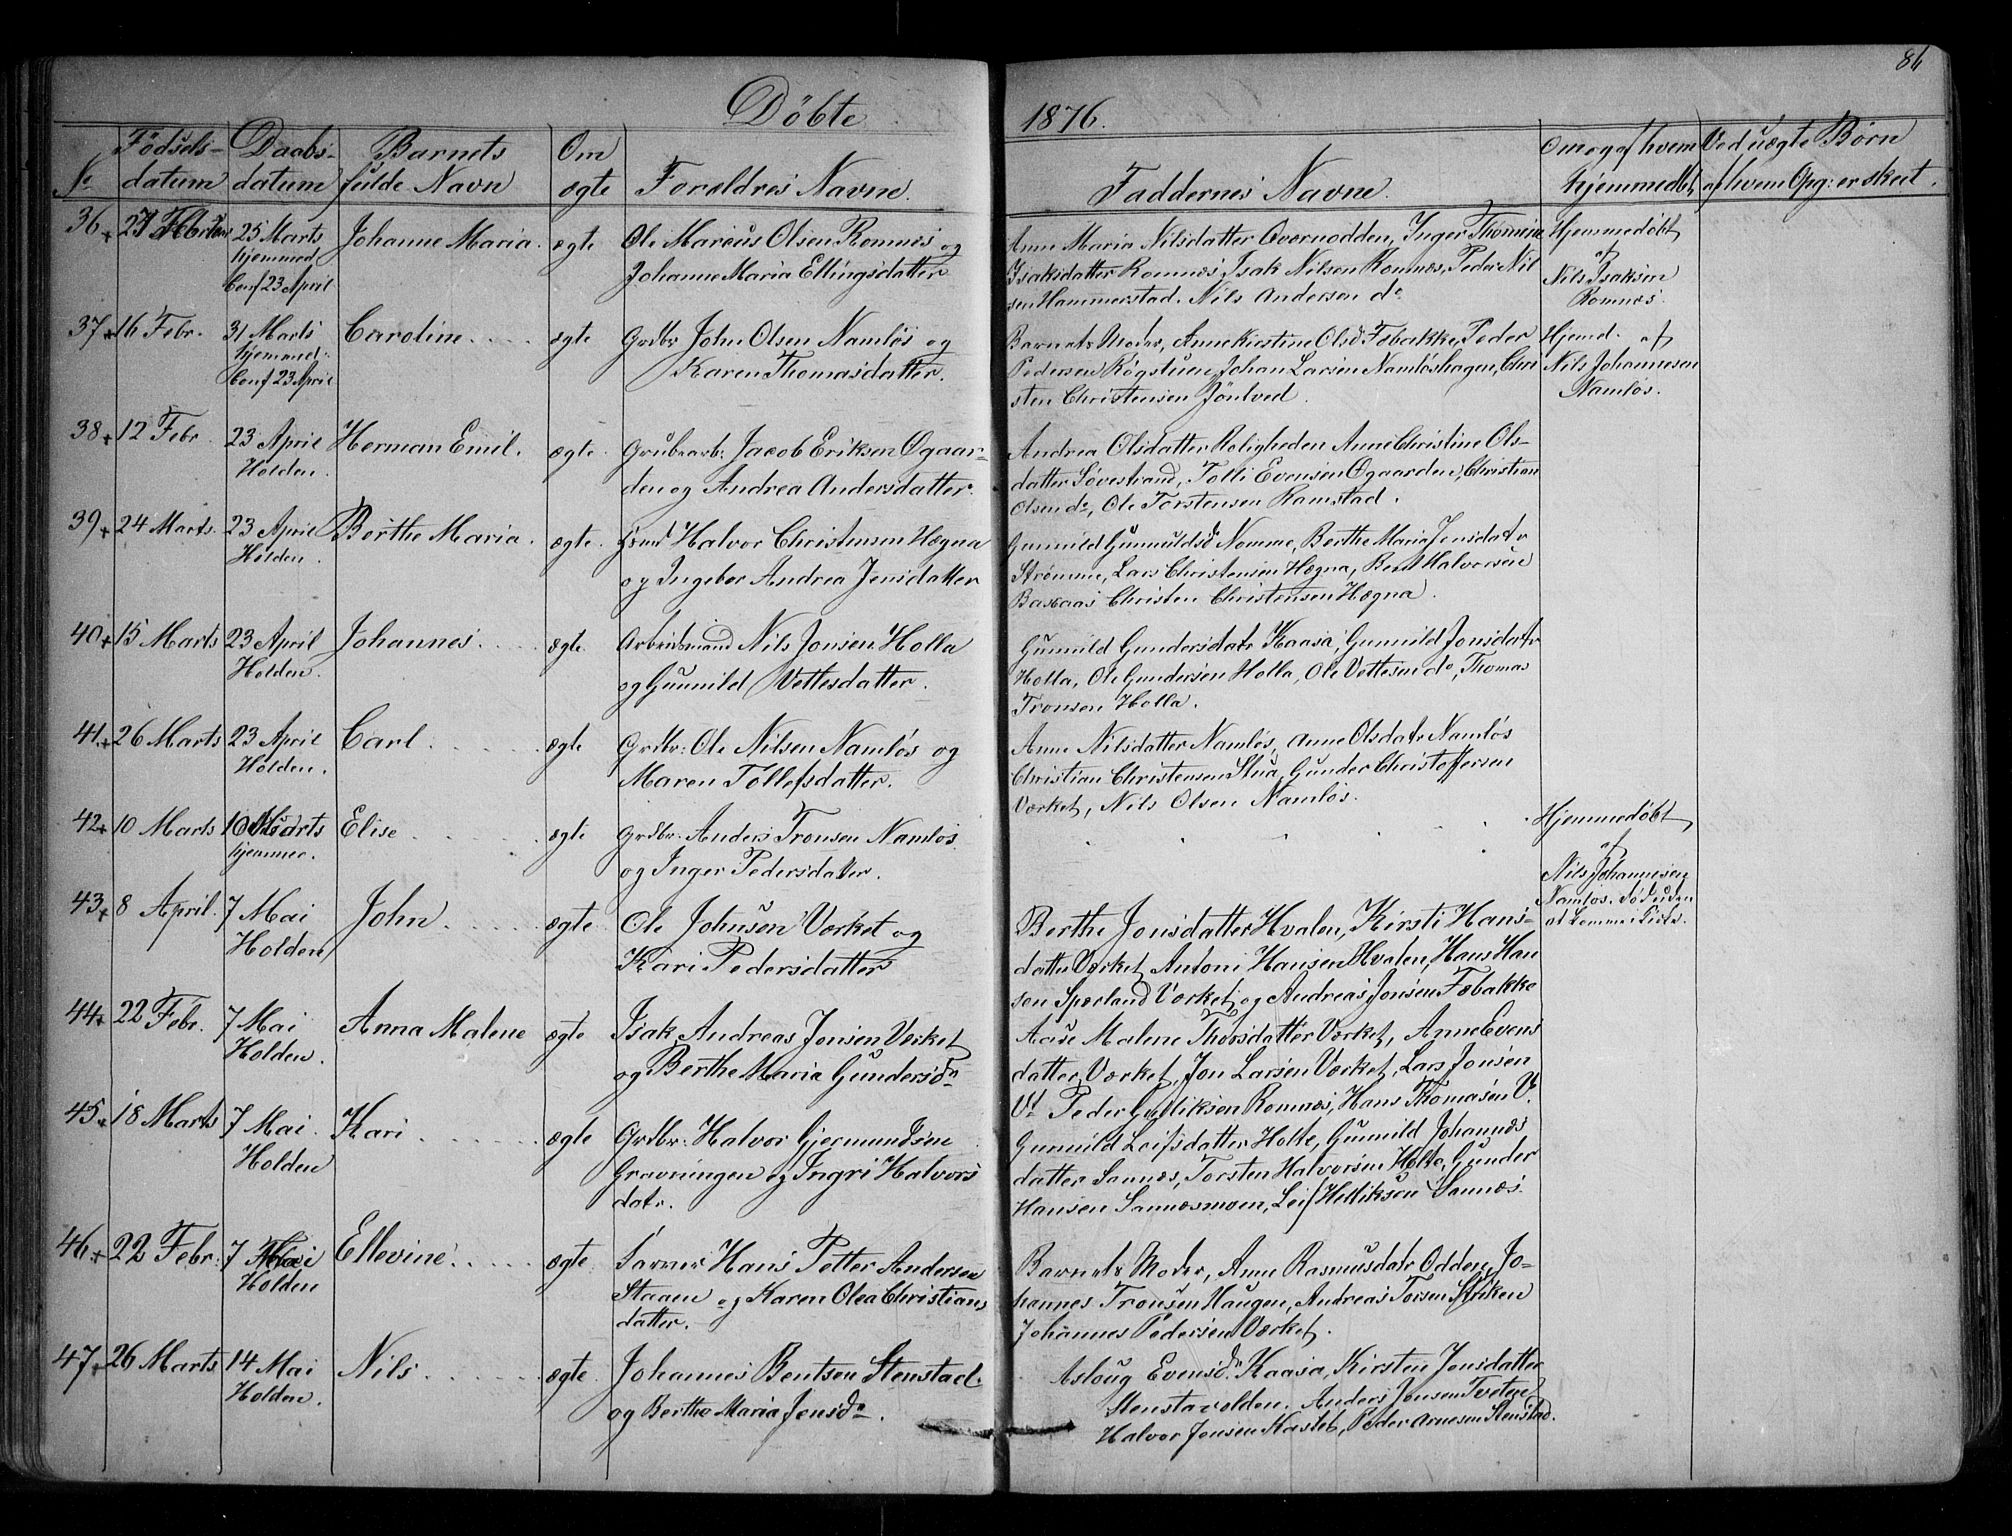 86
Döbte 1876.
No
Födsels-
datum
Daabs-
datum
Barnets
fulde Navn
Om
ægte
Forældres Navne.
Faddernes Navne.
Om og af hvem
hjemmedöbt,
Ved uægte Børn
af hvem Opg: er skeet.
36
25 Marts
hjemmed.
Conf 23 April
Johanne Maria.
ægte
Ole Marcus Olsen Romnes og
Johanne Maria Ellingsdatter
Anne Maria Nilsdatter Overnodden, Inger Thomine
Isaksdatter Romnes, Isak Nilsen Romnes, Peder Nil
sen Hammerstad. Nils Andersen do
Hjemmedöbt
af
Nils Isaksen
Romnes.
37
16 Febr.
31 Marts
hjemmed.
Conf 23 April
Caroline
ægte
Grdbr John Olsen Namlös og
Karen Thomasdatter.
Barnets Moder, Anne Kirstine Olsd Fæbakke, Peder
Pedersen Rögstuen, Johan Larsen Namlöshagen, Chri
sten Christensen Jöntved.
Hjemd. af
Nils Johannesen
Namlös.
38
12 Febr
23 April
Holden.
Herman Emil.
ægte
Grubearb: Jacob Eriksen Øgaar-
den og Andrea Andersdatter.
Andrea Olsdatter Roligheden Anne Christine Ols-
datter Søvestrand, Tolli Evensen Øgaarden, Christian
Olsen do, Ole Torstensen Ramstad.
39
24 Marts.
23 April
Holden.
Berthe Maria.
ægte.
Halvor Christensen Hægna
og Ingebor Andrea Jensdatter
Gunnild Gunnuldsd Nomme, Berthe Maria Jensdatr
Strömme, Lars Christensen Hægna, Bent Halvorsen
Christen Christensen Hægna.
40
15 Marts
23 April
Holden.
Johannes.
ægte
Arbeidsmand Nils Jonsen Holla
og Gunnild Vettesdatter.
Gunnild Gundersdatr Kaasa, Gunnild Jonsdatr
Holla, Ole Gundersen Holla, Ole Vettesen do, Thomas
Tronsen Holla.
41
26 Marts
23 April
Holden.
Carl
ægte
Grdbr: Ole Nilsen Namlös og
Maren Tollefsdatter.
Anne Nilsdatter Namlös, Anne Olsdatr Namlös
Christian Christensen Stua, Gunder Christoffersen
Værket, Nils Olsen Namlös.
42
10 Marts
10 Marts
hjemmed.
Elise
ægte
Grdbr: Anders Tronsen Namlös
og Inger Pedersdatter.
Hjemmedöbt
af
Nils Johannesen
Namlös.
43
8 April.
7 Mai
Holden
John
ægte
Ole Johnsen Værket og
Kari Pedersdatter
Berthe Jonsdatter Hvalen, Kirsti Hans-
datter Værket, Antoni Hansen Hvalen, Hans Han
sen Sperland Værket og Andreas Jonsen Fæbakke
44
22 Febr.
7 Mai
Holden.
Anna Malene
ægte
Isak Andreas Jonsen Værket
og Berthe Maria Gundersdr
Aase Malene Thorsdatter Værket, Anne Evens
datter Værket, Jon Larsen Værket, Lars Jonsen
Vt Peder Gulliksen Romnes, Hans Thomasen V.
45
18 Marts
7 Mai.
Holden
Kari
ægte
Grdbr: Halvor Gjermundsen
Gravningen og Ingri Halvors
datr.
Gunnild Leifsdatter Holte, Gunnild Johannes
datter Sannes, Torsten Halvorsen Holte, Gunder
Hansen Sannesmoen, Leif Helliksen Sannes.
46
22 Febr.
7 Mai
Holden
Ellevine.
ægte
Hans Petter Andersen
Staaen og Karen Olea Christians
datter.
Barnets Moder, Anne Rasmusdatr Odden, Jo-
hannes Tronsen Haugen, Andreas Torsen
Johannes Pedersen Værket.
47
26 Marts
14 Mai
Holden.
Nils
ægte.
Johannes Bentsen Stenstad
og Berthe Maria Jensdr.
Aslaug Evensdr Kaasa, Kirsten Jonsdatter
Stenstavolden. Anders Jonsen
Halvor Jensen Kasteb, Peder Arnesen Stenstad.